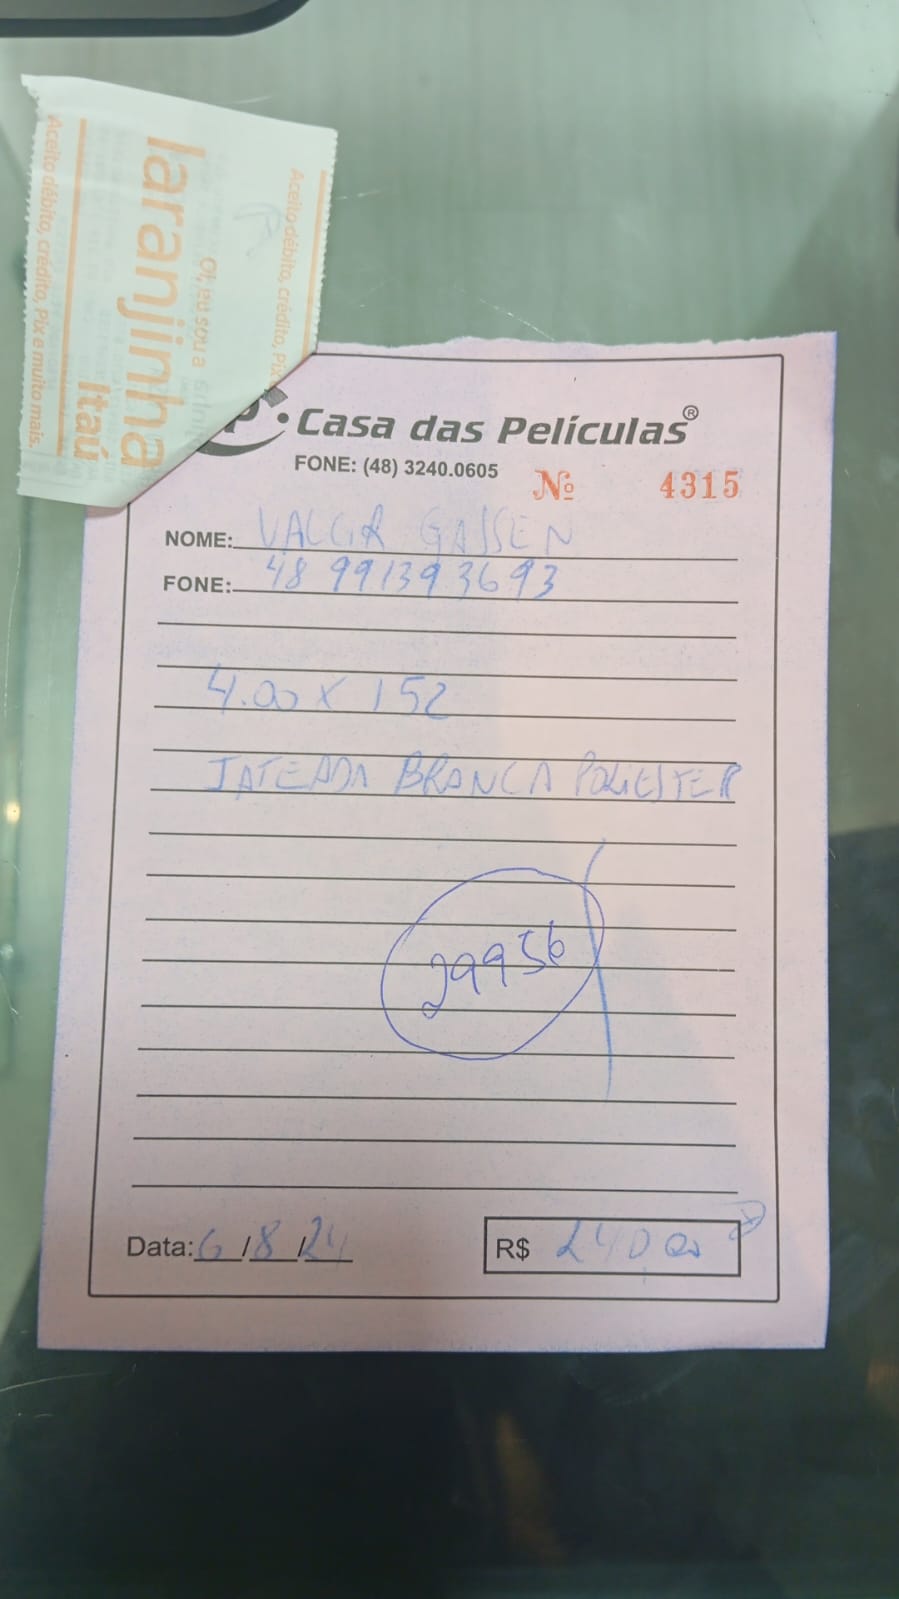 Aceito débito, crédito, Pix e muito mais.
Itaú
laranjinha
Oi, eu sou a
Aceito débito, crédito, Pix
Casa das Películas®
FONE: (48) 3240.0605
Nº 4315
NOME: VALCIR GASSEN
FONE: 48 991393693
4.00 x 152
JATEADA BRANCA POLIESTER
29956
Data: 6/8/24
R$ 240,00